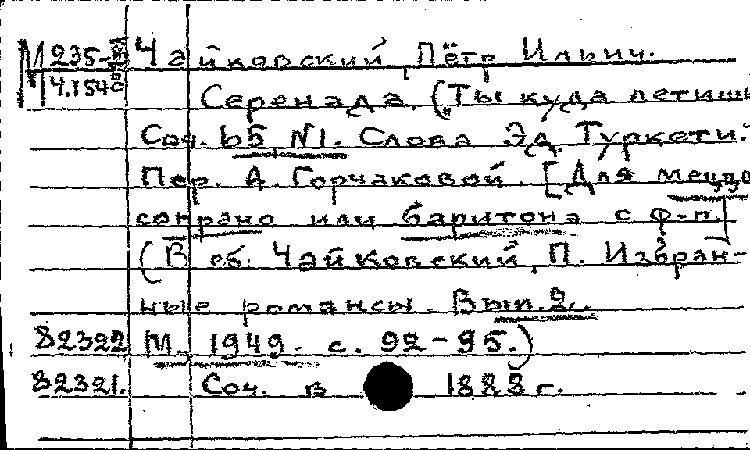 М 235- Чайковский, Пётр Ильич.
Ч.154
Серенада. („Ты куда летишь
Соч. 65, N1. Слова Эд. Туркети.
Пер. А. Горчаковой. [Для меццо
сопрано или баритона с ф-п.]
(В сб: Чайковский, П. Избран-
ные романсы. Вып. 2.
82322 М., 1949. с. 92-95.)
82321. Соч. в 1888 г.